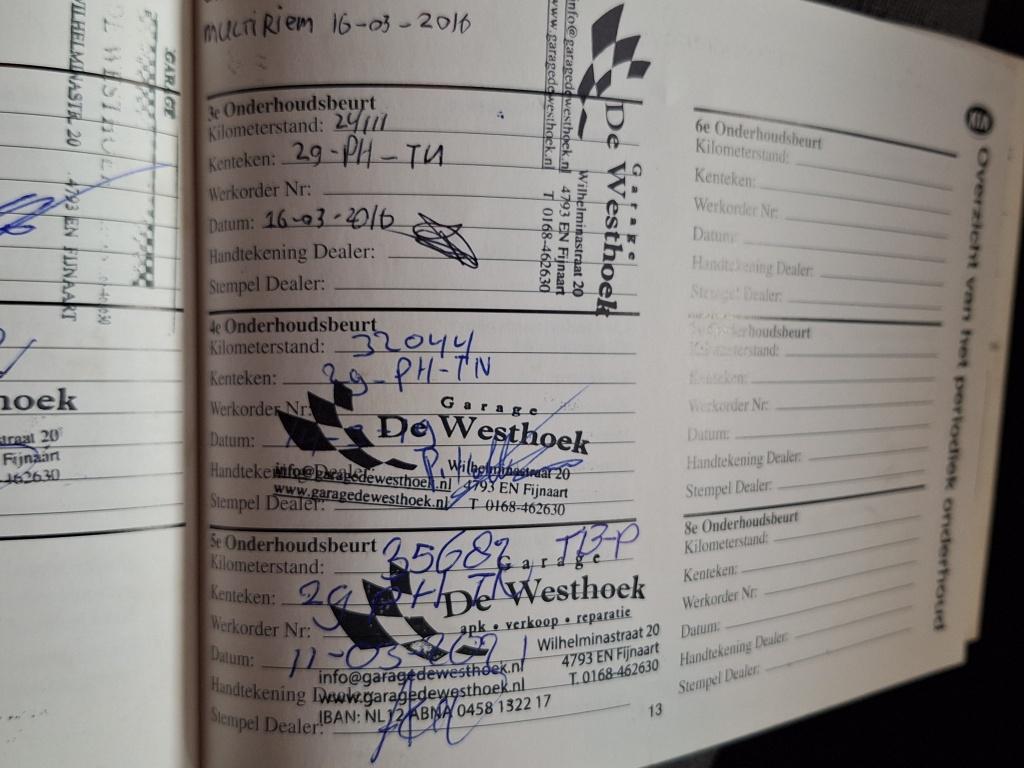 multiriem 16-03-2016
3e Onderhoudsbeurt
Kilometerstand: 24111
Kenteken: 29-PH-TN
Werkorder Nr:
Datum: 16-03-2016
Handtekening Dealer:
Stempel Dealer:
Garage
De Westhoek
Wilhelminastraat 20
4793 EN Fijnaart
T 0168-462630
info@garagedewesthoek.nl
www.garagedewesthoek.nl
4e Onderhoudsbeurt
Kilometerstand: 32044
Kenteken: 29-PH-TN
Werkorder Nr:
Datum:
Handtekening Dealer:
Stempel Dealer:
Garage
De Westhoek
info@garagedewesthoek.nl
www.garagedewesthoek.nl
Wilhelminastraat 20
4793 EN Fijnaart
T 0168-462630
5e Onderhoudsbeurt
Kilometerstand: 35682
Kenteken: 29 PH TN
Werkorder Nr:
Datum: 11-03-2021
Handtekening Dealer:
Stempel Dealer:
Garage
De Westhoek
apk • verkoop • reparatie
Wilhelminastraat 20
4793 EN Fijnaart
T. 0168-462630
info@garagedewesthoek.nl
www.garagedewesthoek.nl
IBAN: NL12 ABNA 0458 1322 17
6e Onderhoudsbeurt
Kilometerstand:
Kenteken:
Werkorder Nr:
Datum:
Handtekening Dealer:
Stempel Dealer:
Onderhoudsbeurt
Kilometerstand:
Kenteken:
Werkorder Nr:
Datum:
Handtekening Dealer:
Stempel Dealer:
8e Onderhoudsbeurt
Kilometerstand:
Kenteken:
Werkorder Nr:
Datum:
Handtekening Dealer:
Stempel Dealer:
Overzicht van het periodiek onderhoud
13
GARAGE
WILHELMINASTR. 20
4793 EN FIJNAART
hoek
straat 20
Fijnaart
462630